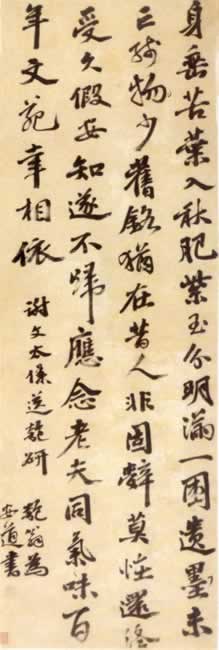 身垂苦葉入秋肥紫玉分明滿一圍遺墨未
亡殘物少舊銘猶在昔人非固辭莫怪遲遲
受久假安知遂不歸應念老夫同氣味百
年文苑幸相依
謝文太僕送匏研
匏翁為
安道書